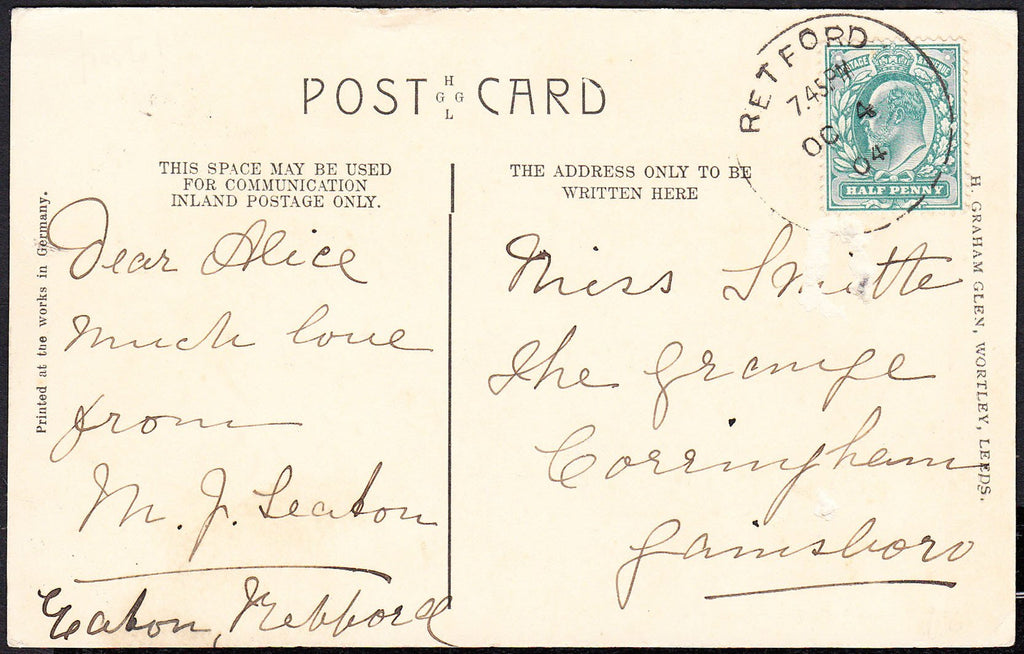 POST HGGL CARD
RETFORD
7.45PM
OC 4
04
POSTAGE & REVENUE
HALF PENNY
THIS SPACE MAY BE USED
FOR COMMUNICATION
INLAND POSTAGE ONLY.
THE ADDRESS ONLY TO BE
WRITTEN HERE
Printed at the works in Germany.
Dear Alice
Much love
from
M. J. Seaton
Eaton, Retford
Miss Smitte
The Grange
Corringham
Gainsboro
H. GRAHAM GLEN, WORTLEY, LEEDS.